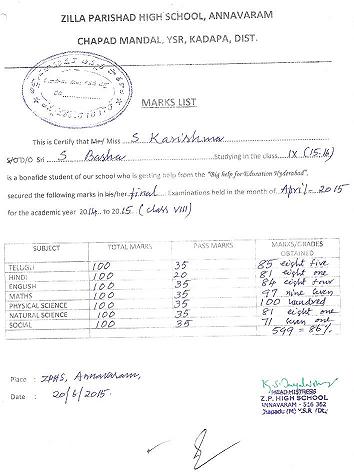 ZILLA PARISHAD HIGH SCHOOL, ANNAVARAM
CHAPAD MANDAL, YSR, KADAPA, DIST.
MARKS LIST
This is Certify that Mr/ Miss S Karishma
S/O D/O Sri S Basha Studying in the class IX (15-16)
is a bonafide student of our school who is getting help from the "Big help for Education Hyderabad",
secured the following marks in his/her final Examinations held in the month of April - 2015
for the academic year 2014 to 2015 (class VIII)
SUBJECT TOTAL MARKS PASS MARKS MARKS/GRADES OBTAINED
TELUGU 100 35 85 eight five
HINDI 100 20 81 eight one
ENGLISH 100 35 84 eight four
MATHS 100 35 97 nine seven
PHYSICAL SCIENCE 100 35 100 hundred
NATURAL SCIENCE 100 35 81 eight one
SOCIAL 100 35 71 seven one
599 = 86%
Place : ZPHS, Annavaram,
Date : 20/6/2015.
HEADMISTRESS
Z.P. HIGH SCHOOL
ANNAVARAM - 516 362
Chapadu (M) Y.S.R. (Dt.)